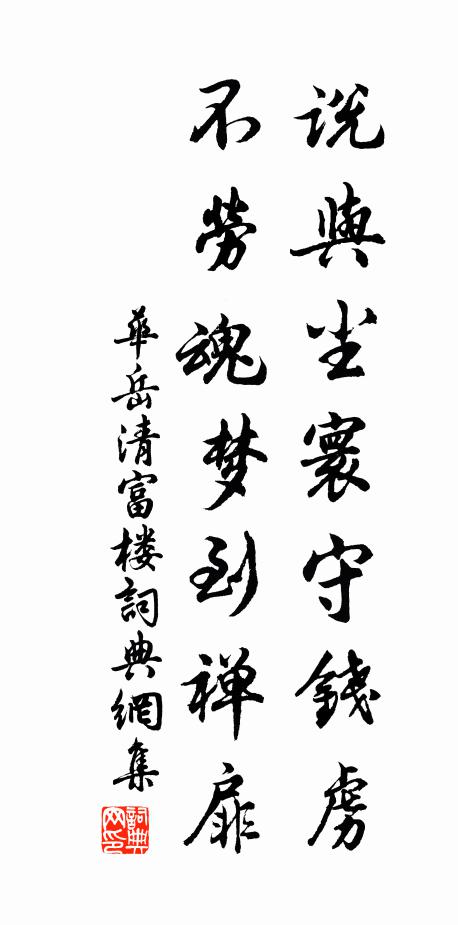 説與尘寰守錢虜
不勞魂梦到禅扉
華岳清富楼詞典網集
詞典网印